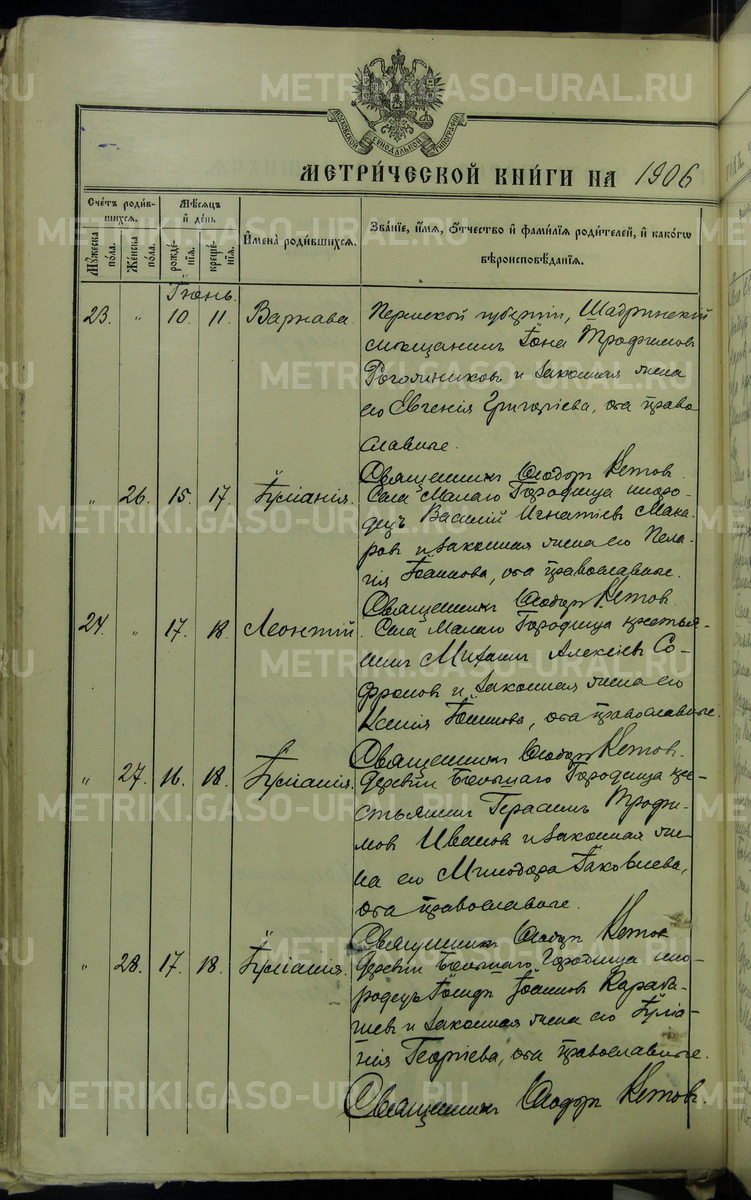 METRIKI.GASO-URAL.RU
МОСКОВСКОЙ СѴНОДАЛЬНОЙ ТИПОГРАФІИ
МЕТРИ́ЧЕСКОЙ КНИ́ГИ НА 1906
Сче́тъ роди́в-
шихся.
Мѣ́сяцъ
и҆ де́нь
И҆мена̀ роди́вшихся.
Зва́нїе, и҆́мя, ѻ҆́тчество и҆ фами́лїя роди́телей, и҆ како́гѡ
вѣроисповѣ́данїя.
Мꙋ́жеска
по́ла.
Же́нска
по́ла.
рожде́-
нїя.
креще́-
нїя.
Іюнь.
23. " 10. 11. Варнава. Пермской губерніи, Шадринскій
мѣщанинъ Іона Трофимовъ
Рогожниковъ и законная жена
его Евгенія Григоріева, оба право
славные.
Священникъ Ѳеодоръ Кетовъ
" 26. 15. 17. Іуліанія. Села Малаго Городища иноро-
децъ Василій Игнатіевъ Мака-
ровъ и законная жена его Пела-
гія Іоаннова, оба православные.
Священникъ Ѳеодоръ Кетовъ
24. " 17. 18. Леонтій. Села Малаго Городища крестья-
нинъ Михаилъ Алексіевъ Со-
фроновъ и законная жена его
Ксенія Іоаннова, оба православные.
Священникъ Ѳеодоръ Кетовъ.
" 27. 16. 18. Іуліанія. Деревни Большаго Городища кре-
стьянинъ Герасимъ Трофи-
мовъ Ивановъ и законная же-
на его Минодора Іаковлева,
оба православные.
Священникъ Ѳеодоръ Кетовъ
" 28. 17. 18. Іуліанія. Деревни Большаго Городища ино-
родецъ Іосифъ Іоанновъ Караба-
шевъ и законная жена его Іуліа-
нія Георгіева, оба православные.
Священникъ Ѳеодоръ Кетовъ